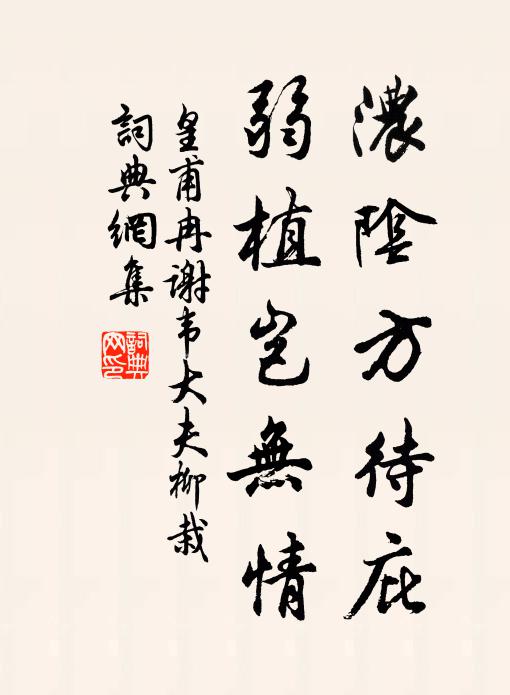 濃陰方待庇
弱植豈無情
皇甫冉謝韦大夫柳栽
詞典網集
詞典網印